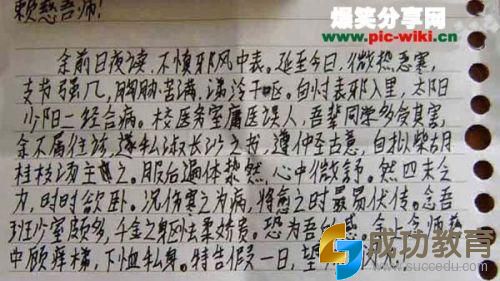 爆笑分享网
www.pic-wiki.cn
慈吾师!
余前日夜读,不慎邪风中表。延至今日,微热恶寒,
支节强几,胸胁苦满,满泛干呕。自忖表邪入里,太阳
少阳二经合病。校医务室庸医误人,吾辈同学多受其害,
余不屑往诊,遂私淑长沙之书,遵仲圣古意,自拟柴胡
桂枝汤为主。服后遍体漐然,心中微舒。然四末乏
力,时时欲卧。况伤寒之为病,将愈之时最易伏传。念吾
班少室颇多,千金之身,柔娇贵。恐为吾
中顾,下恤私身。特告假一日,望
成功教育
www.succedu.com